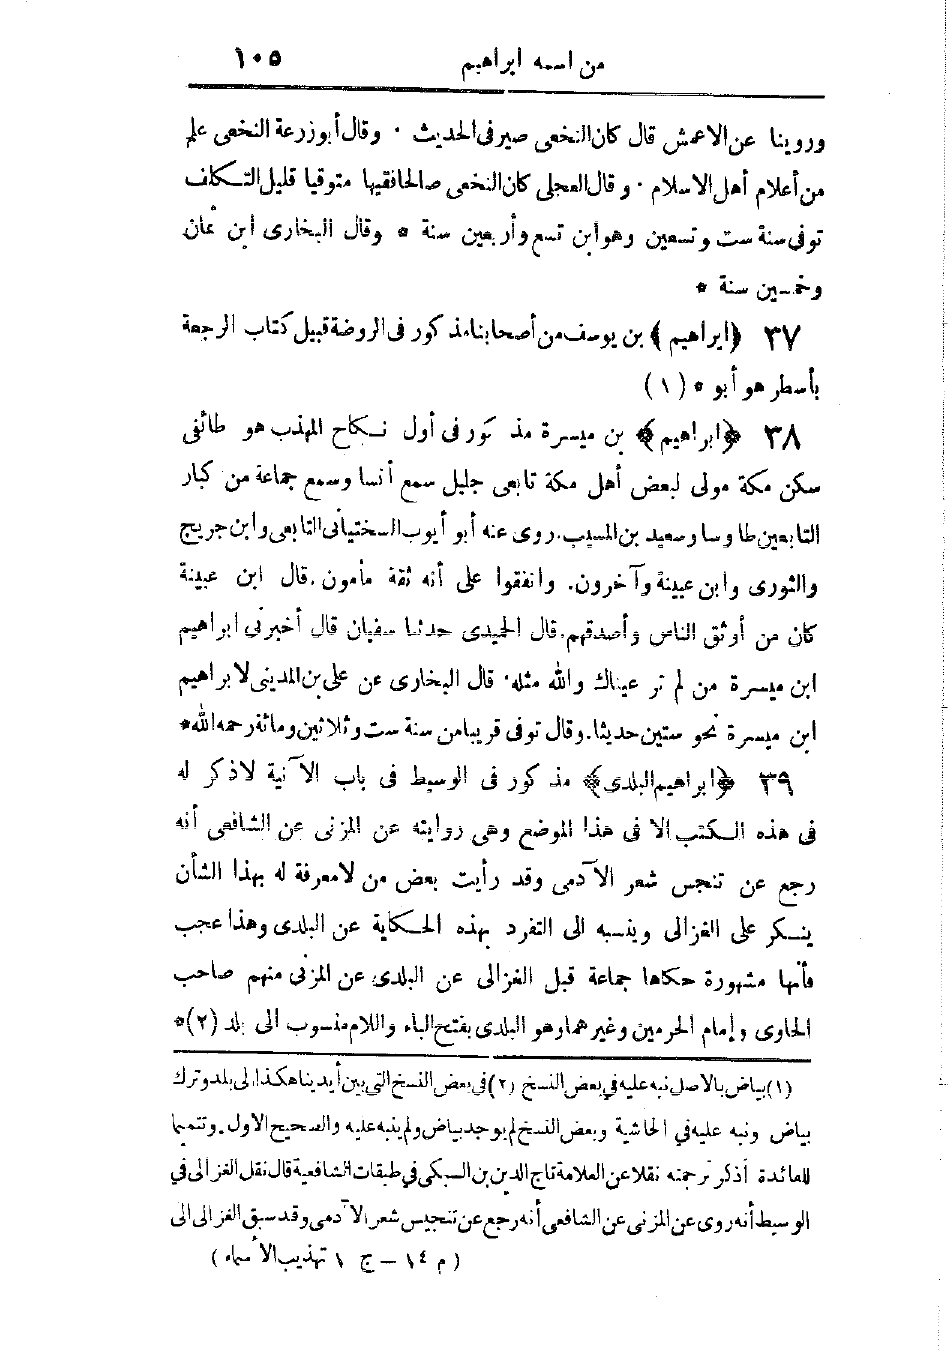 من اسمه ابراهيم ١٠٥
وروينا عن الاعمش قال كان النخعى صيرفى الحديث · وقال أبو زرعة النخعى علم
من أعلام أهل الاسلام · وقال العجلى كان النخعى صالحا فقيها متوقيا قليل التكلف
توفى سنة ست وتسعين وهو ابن تسع وأربعين سنة * وقال البخارى ابن ثمان
وخمسين سنة *
٣٧ ﴿ابراهيم﴾ بن يوسف من أصحابنا مذكور فى الروضة قبيل كتاب الرجعة
بأسطر هو أبو * (١)
٣٨ ﴿ابراهيم﴾ بن ميسرة مذكور فى أول نكاح المهذب هو طائفى
سكن مكة مولى لبعض أهل مكة تابعى جليل سمع أنسا وسمع جماعة من كبار
التابعين طاوسا وسعيد بن المسيب. روى عنه أبو أيوب السختيانى التابعى وابن جريج
والثورى وابن عيينة وآخرون. واتفقوا على أنه ثقة مأمون. قال ابن عيينة
كان من أوثق الناس وأصدقهم. قال الحميدى حدثنا سفيان قال أخبرنى ابراهيم
ابن ميسرة من لم تر عيناك والله مثله · قال البخارى عن على بن المدينى لابراهيم
ابن ميسرة نحو ستين حديثا. وقال توفى قريبا من سنة ست وثلاثين ومائة رحمه الله *
٣٩ ﴿ابراهيم البلدى﴾ مذكور فى الوسيط فى باب الآنية لاذكر له
فى هذه الكتب الا فى هذا الموضع وهى روايته عن المزنى عن الشافعى أنه
رجع عن تنجس شعر الآدمى وقد رأيت بعض من لامعرفة له بهذا الشأن
ينكر على الغزالى وينسبه الى التفرد بهذه الحكاية عن البلدى وهذا عجب
فأنها مشهورة حكاها جماعة قبل الغزالى عن البلدى عن المزنى منهم صاحب
الحاوى وإمام الحرمين وغيرهما وهو البلدى بفتح الباء واللام منسوب الى بلد (٢) *
(١) بياض بالاصل نبه عليه في بعض النسخ (٢) في بعض النسخ التي بين أيدينا هكذا الى بلد وترك
بياض ونبه عليه في الحاشية وبعض النسخ لم يوجد بياض ولم ينبه عليه والصحيح الاول. وتتميما
للفائدة أذكر ترجمته نقلا عن العلامة تاج الدين بن السبكى في طبقات الشافعية قال نقل الغزالى في
الوسيط أنه روى عن المزنى عن الشافعى أنه رجع عن تنجيس شعر الآدمى وقد سبق الغزالى الى
(م ١٤ – ج ١ تهذيب الأسماء)